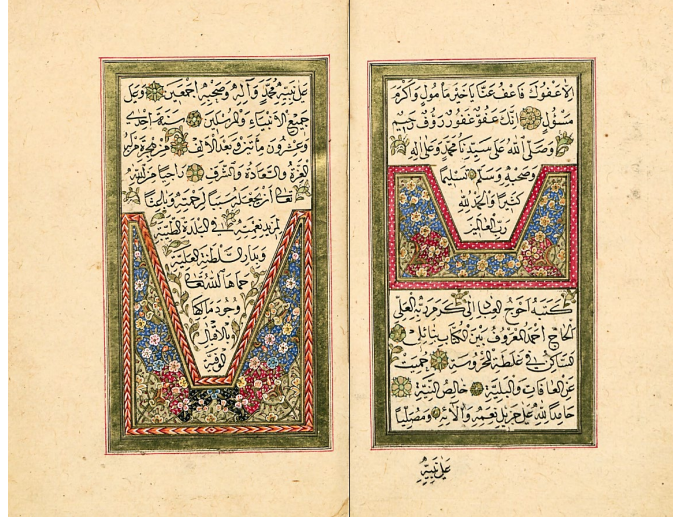 الاعفوك فاعف عنا ياخير مامول واكرم
مسؤل انك عفو غفور رؤف رحيم
وصلى الله على سيدنا محمد وعلى اله
وصحبه وسلم تسليما
كثيرا والحمد لله
رب العالمين
كتبه احوج العباد الى كرم ربه العلى
الحاج احمد المعروف بين الكتاب بنائلى
الساكن فى غلطة المحروسة حميت
عن الافات والبلية خالص النية
حامدا لله على جزيل نعمه والائه ومصليا
على نبيه
على نبيه محمد واله وصحبه اجمعين وعلى
جميع الانبياء والمرسلين سنة احدى
وعشرون ماتين وبعد الالف من هجرة من له
العزة والسعادة والشرف راجيا من الله
تعالى ان يجعله سببا لرحمته وباعثا
لمزيد نعمته فى البلدة الطيبة
وبدار السلطنة العلية
حماها الله تعالى
وجود مالكها
بالاقبال